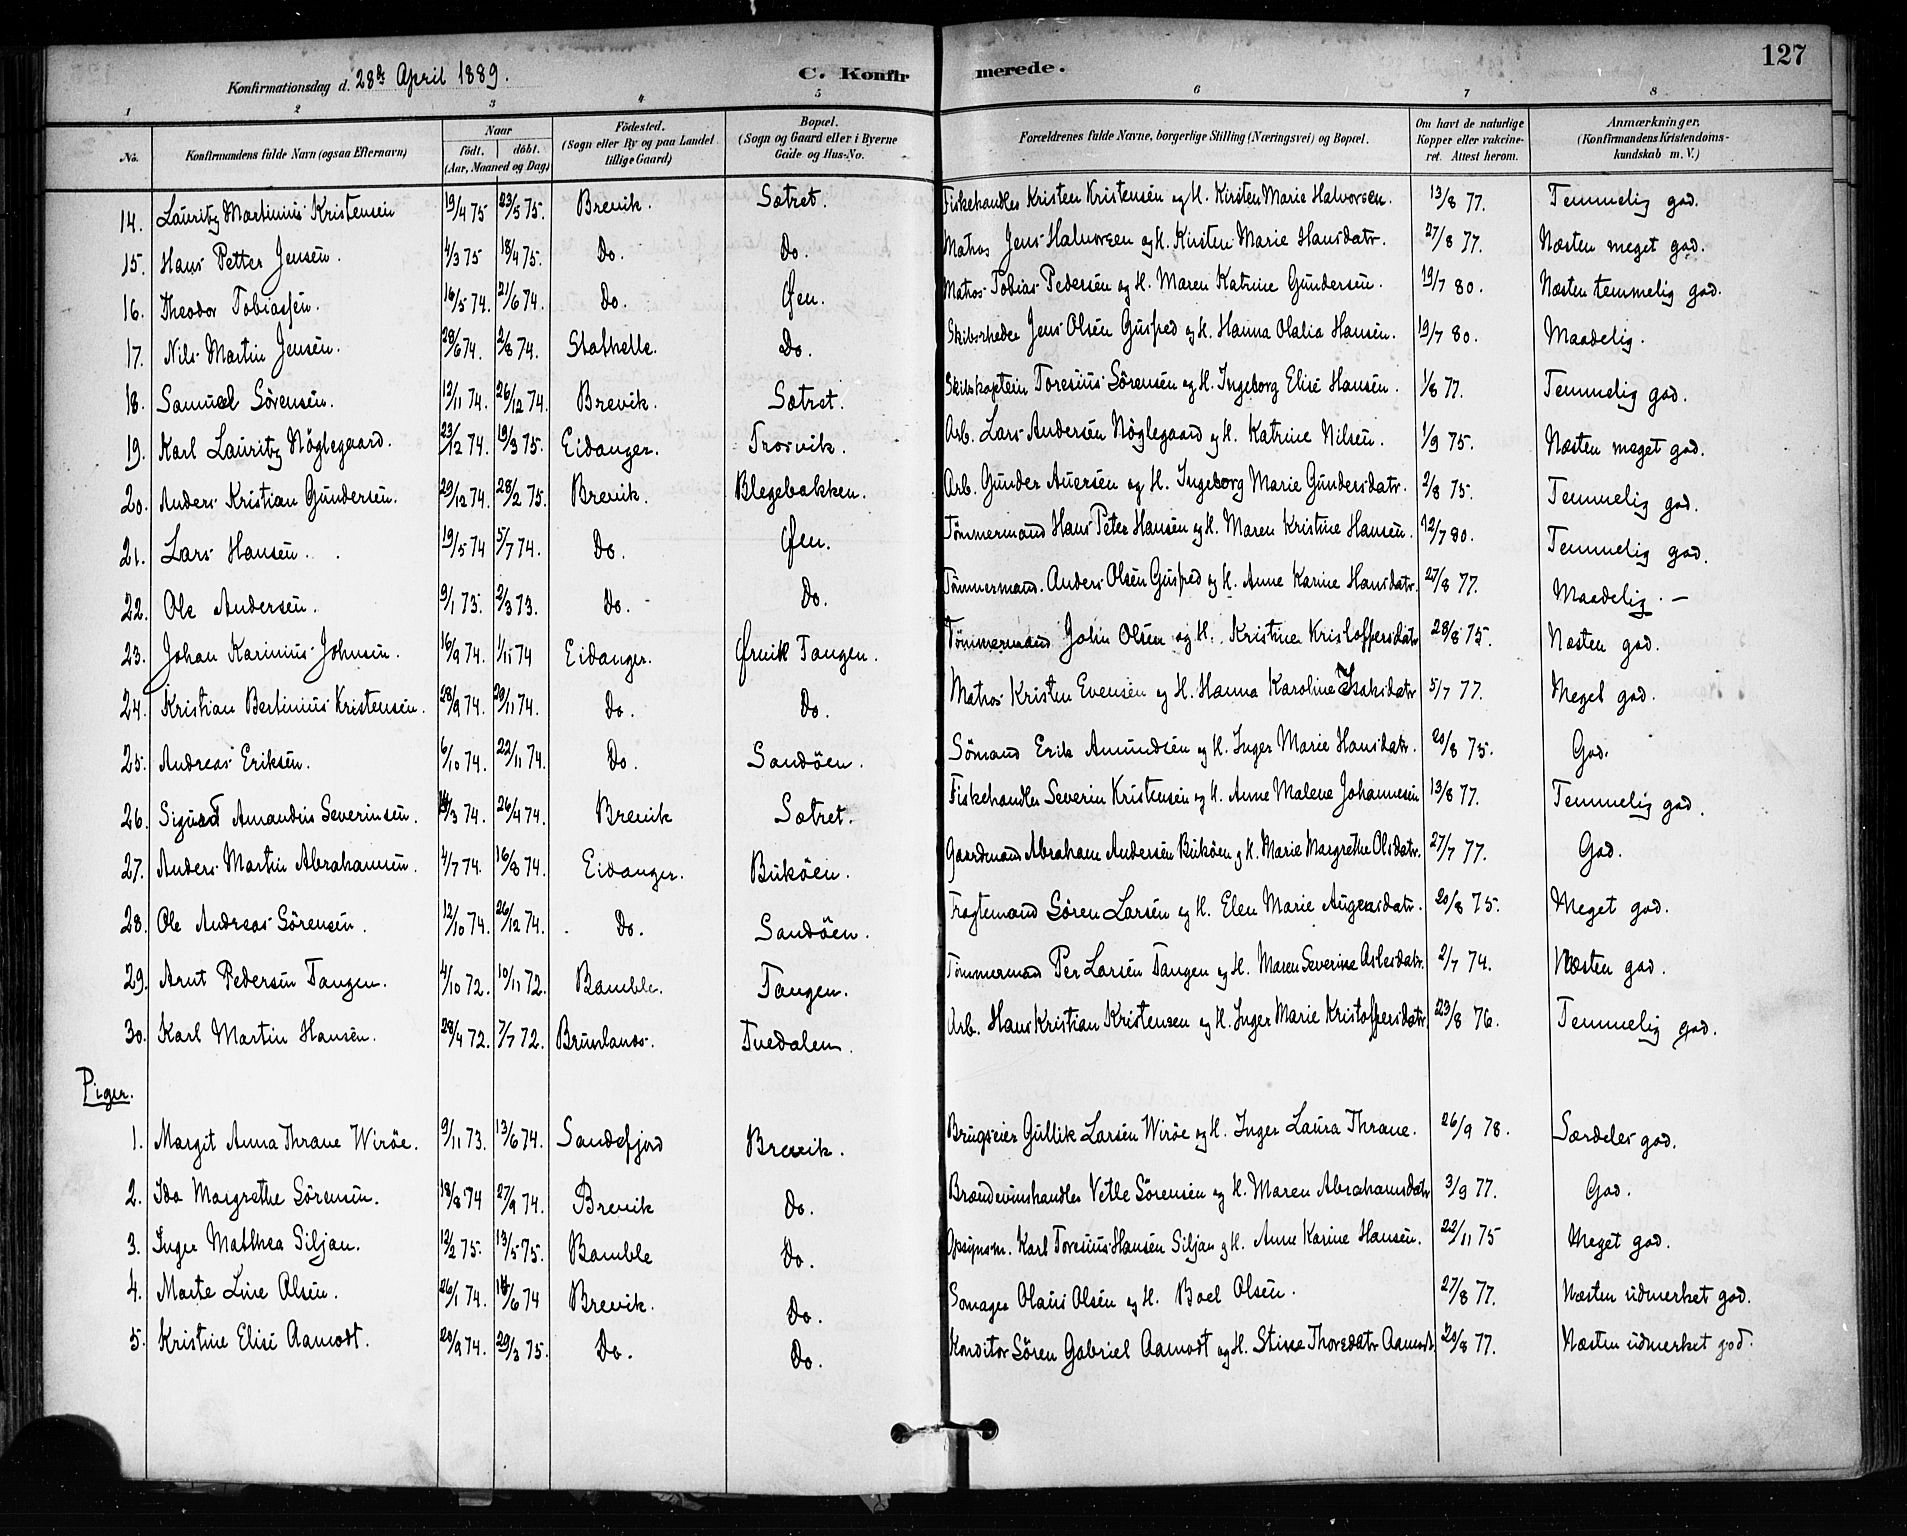 127
Konfirmationsdag d. 28de April 1889. C. Konfirmerede.
1 2 3 4 5 6 7 8
No. Konfirmandens fulde Navn (ogsaa Efternavn) Naar født. døbt. (Aar, Maaned og Dag) Fødested. (Sogn eller By og paa Landet tillige Gaard) Bopæl. (Sogn og Gaard eller i Byerne Gade og Hus-No. Forældrenes fulde Navne, borgerlige Stilling (Næringsvei) og Bopæl. Om havt de naturlige Kopper eller vakcineret. Attest herom. Anmærkninger. (Konfirmandens Kristendomskundskab m. V.)
14. Lauritz Martinius Kristensen 19/4 75 23/5 75. Brevik. Sætret. Fiskehandler Kristen Kristensen og H. Kirsten Marie Halvorsen. 13/8 77. Temmelig god.
15. Hans Petter Jensen. 4/3 75 18/4 75. Do. Do. Matros Jens Halvorsen og H. Kirsten Marie Hansdatr. 27/8 77. Næsten meget god.
16. Theodor Tobiassen. 16/5 74. 21/6 74. Do. Øen. Matros Tobias Pedersen og H. Maren Katrine Gundersen. 19/7 80. Næsten temmelig god.
17. Nils Martin Jensen. 28/6 74. 2/8 74. Stathelle. Do. Skibsrheder Jens Olsen Gusfred og H. Hanna Olalia Hansen. 19/7 80. Maadelig.
18. Samuel Sörensen. 12/11 74. 26/12 74. Brevik. Sætret. Skibskaptein Toresius Sörensen og H. Ingeborg Elise Hansen. 1/8 77. Temmelig god.
19. Karl Lauritz Nöglegaard. 23/12 74. 19/3 75. Eidanger. Trosvik. Arb. Lars Andersen Nöglegaard og H. Katrine Nilsen. 1/9 75. Næsten meget god.
20. Anders Kristian Gundersen. 29/12 74. 28/2 75. Brevik. Blegebakken. Arb. Gunder Auersen og H. Ingeborg Marie Gundersdatr. 2/8 75. Temmelig god.
21. Lars Hansen. 19/5 74 5/7 74. Do. Øen. Tömmermand Hans Peter Hansen og H. Maren Kristine Hansen. 12/7 80. Temmelig god.
22. Ole Andersen. 9/1 73. 2/3 73. Do. Do. Tömmermand. Anders Olsen Gusfred og H. Anne Karine Hansdatr. 27/8 77. Maadelig. —
23. Johan Karinius Johnsen. 16/9 74. 1/11 74 Eidanger. Ørvik Tangen. Tömmermand John Olsen og H. Kristine Kristoffersdatr 28/8 75. Næsten god.
24. Kristian Bertinius Kristensen. 28/9 74. 29/11 74. Do. Do. Matros Kristen Evensen og H. Hanna Karoline Isaksdatr 5/7 77. Meget god.
25. Andreas Eriksen. 6/10 74. 22/11 74. Do. Sandöen. Sömand Erik Amundsen og H. Inger Marie Hansdatr. 20/8 75. God.
26. Sigurd Amandus Severinsen. /3 74. 26/4 74. Brevik Sætret. Fiskehandler Severin Kristensen og H. Anne Malene Johannesen 13/8 77. Temmelig god.
27. Anders Martin Abrahamsen. 4/7 74. 16/8 74. Eidanger. Buköen. Gaardmand Abraham Andersen Buköen og H. Marie Margrethe Olsdatr. 27/7 77. God.
28. Ole Andreas Sörensen. 12/10 74. 26/12 74. Do. Sandöen. Fragtemand Sören Larsen og H. Elen Marie datr. 20/8 75. Meget god.
29. Arnt Pedersen Tangen. 4/10 72. 10/11 72. Bamble. Tangen. Tömmermand Per Larsen Tangen og H. Maren Severine Aslesdatr. 2/7 74. Næsten god.
30. Karl Martin Hansen. 28/4 72. 7/7 72. Brunlanæs. Tvedalen. Arb. Hans Kristian Kristensen og H. Inger Marie Kristoffersdatr 23/8 76. Temmelig god.
Piger.
1. Margit Anna Thrane Wiröe. 9/11 73. 13/6 74. Sandefjord Brevik. Brugseier Gullik Larsen Wiröe og H. Inger Laura Thrane. 26/9 78. Særdeles god.
2. Ida Margrethe Sörensen. 18/8 74 27/9 74. Brevik Do. Brændevinshandler Vetle Sörensen og H. Maren Abrahamsdatr 3/9 77. God.
3. Inger Mathea Siljan. 12/2 75. 13/5 75. Bamble Do. Opsynsm. Karl Toresius Hansen Siljan og H. Anne Karine Hansen. 22/11 75 Meget god.
4. Marte Line Olsen. 26/1 74. /6 74 Brevik. Do. Olaus Olsen og H. Boel Olsen. 27/8 77. Næsten udmerket god.
5. Kristine Elise Aamodt. 20/9 74. 29/3 75. Do. Do. Konditor Sören Gabriel Aamodt og H. Stine Thorsdatr Aamodt. 20/8 77. Næsten udmerket god.